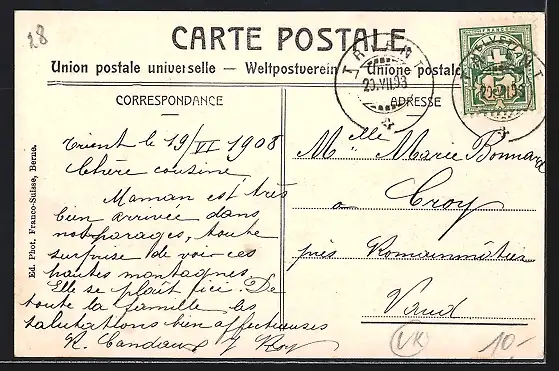 28
CARTE POSTALE
Union postale universelle – Weltpostverein – Unione postale
CORRESPONDANCE
ADRESSE
TRIENT
20.VII.08
HELVETIA
FRANCO
Trient le 19/VI 1908
Chère cousine,
Maman est très
bien arrivée dans
nos parages, toute
surprise de voir ces
hautes montagnes
Elle se plaît ici. De
toute la famille les
salutations bien affectueuses
Melle Marie Bonnard
à Croy
près Romainmôtier
Vaud
Ed. Phot. Franco-Suisse, Berne.
VK
10.-